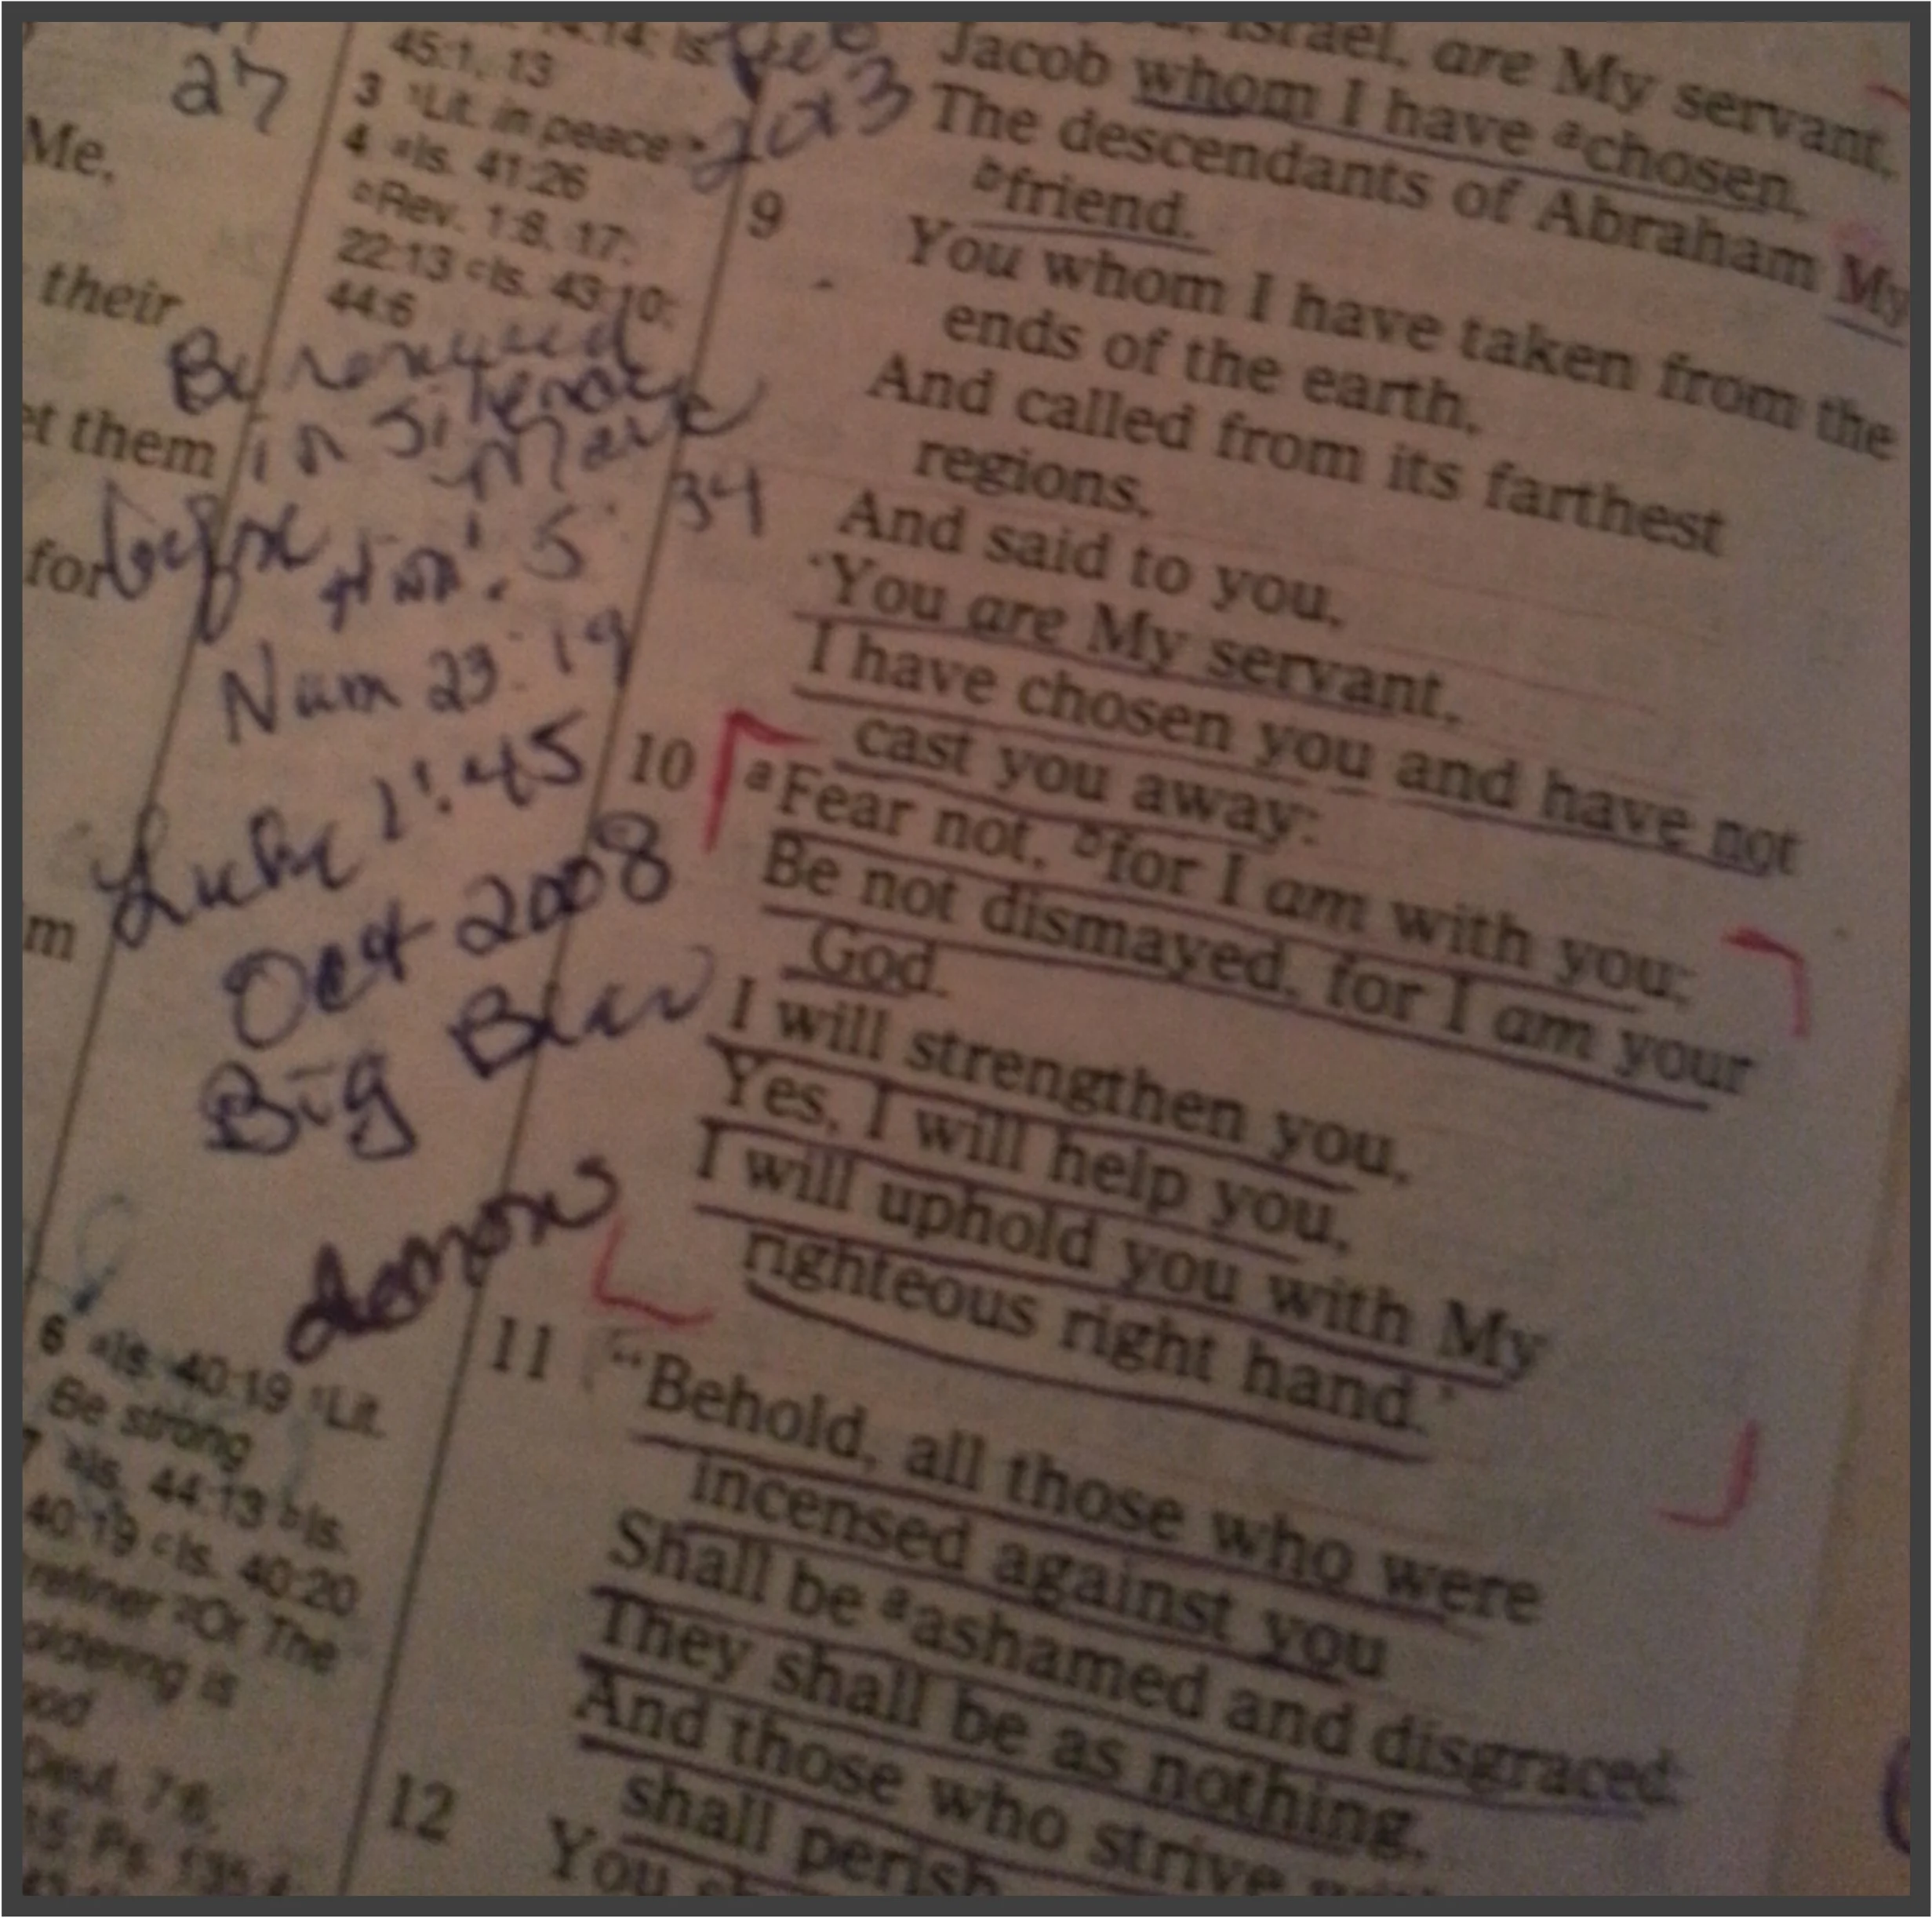 27
Me,
their
et them
for
m
45:1, 13
3 ¹Lit. in peace
4 ªIs. 41:26
ᵇRev. 1:8, 17;
22:13 ᶜIs. 43:10;
44:6
Feb
2013
Be renewed
in
Mark
before Him! 5:34
Num 23:19
Luke 1:45
Oct 2008
Big Blue
demons
6 ªIs. 40:19 ¹Lit.
Be strong
7 ªIs. 44:13 ᵇIs.
40:19 ᶜIs. 40:20
refiner ²Or The
soldering is
Israel, are My servant,
Jacob whom I have ªchosen,
The descendants of Abraham My
ᵇfriend.
9 You whom I have taken from the
ends of the earth,
And called from its farthest
regions,
And said to you,
‘You are My servant,
I have chosen you and have not
cast you away:
10 ªFear not, ᵇfor I am with you;
Be not dismayed, for I am your
God.
I will strengthen you,
Yes, I will help you,
I will uphold you with My
righteous right hand.’
11 “Behold, all those who were
incensed against you
Shall be ªashamed and disgraced;
They shall be as nothing,
And those who strive
shall perish.
12 You